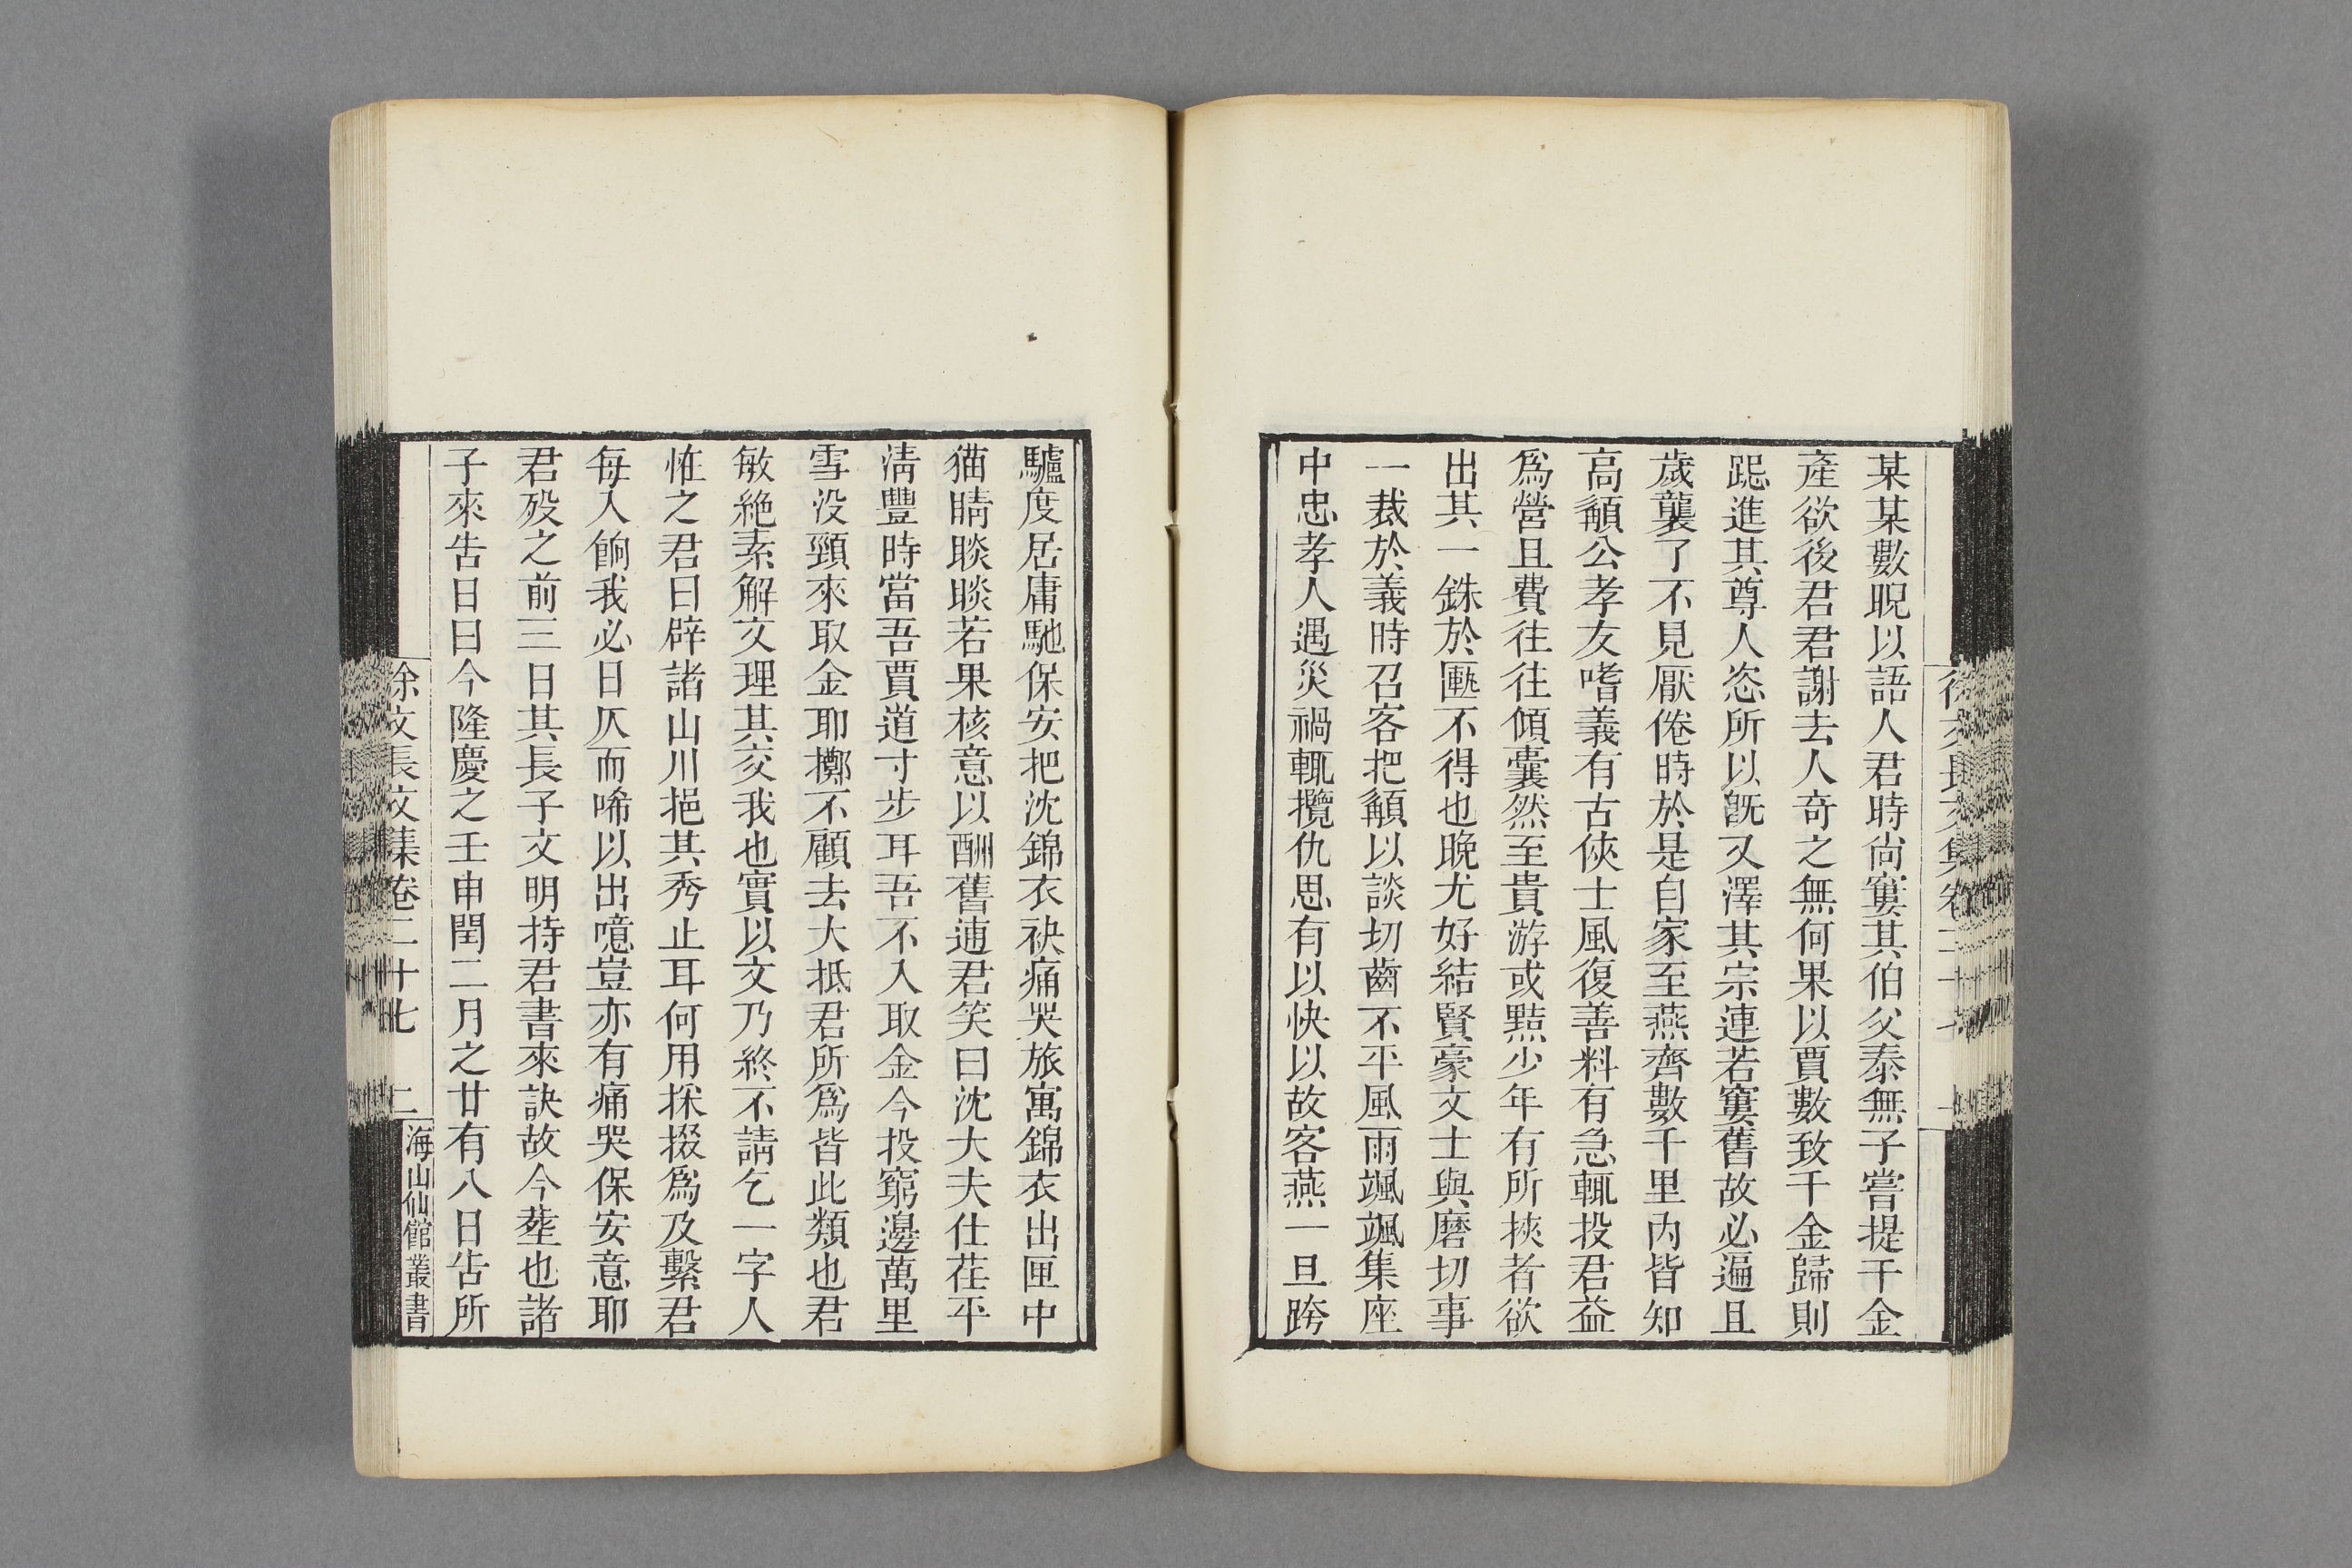 某某數睨以語人君時尚窶其伯父泰無子嘗提千金
產欲後君君謝去人奇之無何果以賈數致千金歸則
跽進其尊人恣所以旣又澤其宗連若窶舊故必遍且
歲襲了不見厭倦時於是自家至燕齊數千里内皆知
高顲公孝友嗜義有古俠士風復善料有急輒投君益
爲營且費往往傾囊然至貴游或黠少年有所挾者欲
出其一銖於匭不得也晚尤好結賢豪文士與磨切事
一裁於義時召客把顲以談切齒不平風雨颯颯集座
中忠孝人遇災禍輒攬仇思有以快以故客燕一旦跨
驢度居庸馳保安把沈錦衣袂痛哭旅寓錦衣出匣中
猫睛睒睒若果核意以酬舊逋君笑曰沈大夫仕茌平
淸豐時當吾賈道寸步耳吾不入取金今投窮邊萬里
雪没頸來取金耶擲不顧去大抵君所爲皆此類也君
敏絶素解文理其交我也實以文乃終不請乞一字人
恠之君曰辟諸山川挹其秀止耳何用採掇爲及繫君
每入餉我必日仄而唏以出噫豈亦有痛哭保安意耶
君殁之前三日其長子文明持君書來訣故今塟也諸
子來告日曰今隆慶之壬申閏二月之廿有八日告所
徐文長文集卷二十七 二
海山仙館叢書